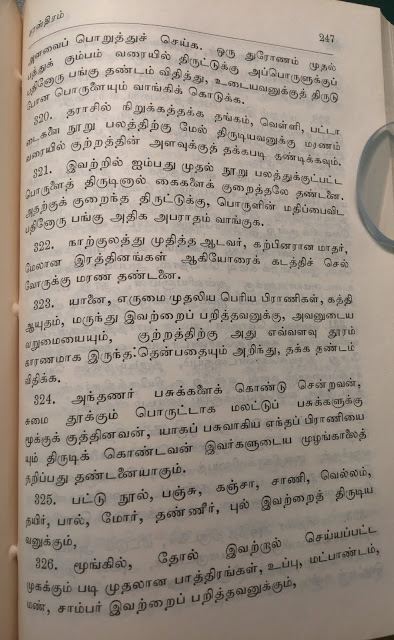 சாஸ்திரம் 247
அளவைப் பொறுத்துச் செய்க. ஒரு துரோணம் முதல்
பத்துக் கும்பம் வரையில் திருட்டுக்கு அப்பொருளுக்குப்
பதினோரு பங்கு தண்டம் விதித்து, உடையவனுக்குத் திருடு
போன பொருளையும் வாங்கிக் கொடுக்க.
320. தராசில் நிறுக்கத்தக்க தங்கம், வெள்ளி, பட்டா
டைகளை நூறு பலத்திற்கு மேல் திருடியவனுக்கு மரணம்
வரையில் குற்றத்தின் அளவுக்குத் தக்கபடி தண்டிக்கவும்.
321. இவற்றில் ஐம்பது முதல் நூறு பலத்துக்குட்பட்ட
பொருளைத் திருடினால் கைகளைக் குறைத்தலே தண்டனை.
அதற்குக் குறைந்த திருட்டுக்கு, பொருளின் மதிப்பைவிட
பதினோரு பங்கு அதிக அபராதம் வாங்குக.
322. நாற்குலத்து முதித்த ஆடவர், கற்பினரான மாதர்,
மேலான இரத்தினங்கள் ஆகியோரைக் கடத்திச் செல்
வோருக்கு மரண தண்டனை.
323. யானை, எருமை முதலிய பெரிய பிராணிகள், கத்தி
ஆயுதம், மருந்து இவற்றைப் பறித்தவனுக்கு, அவனுடைய
வறுமையையும், குற்றத்திற்கு அது எவ்வளவு தூரம்
காரணமாக இருந்த:தென்பதையும் அறிந்து, தக்க தண்டம்
விதிக்க.
324. அந்தணர் பசுக்களைக் கொண்டு சென்றவன்,
சுமை தூக்கும் பொருட்டாக மலட்டுப் பசுக்களுக்கு
மூக்குக் குத்தினவன், யாகப் பசுவாகிய எந்தப் பிராணியை
யும் திருடிக் கொண்டவன் இவர்களுடைய முழங்காலைத்
தறிப்பது தண்டனையாகும்.
325. பட்டு நூல், பஞ்சு, கஞ்சா, சாணி, வெல்லம்,
தயிர், பால், மோர், தண்ணீர், புல் இவற்றைத் திருடிய
வனுக்கும்,
326. மூங்கில், தோல் இவற்றால் செய்யப்பட்ட
முகக்கும் படி முதலான பாத்திரங்கள், உப்பு, மட்பாண்டம்,
மண், சாம்பர் இவற்றைப் பறித்தவனுக்கும்,